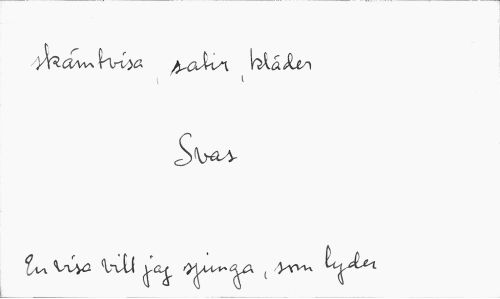 skämtvisa, satir, kläder
Svas
En visa vill jag sjunga, som lyder